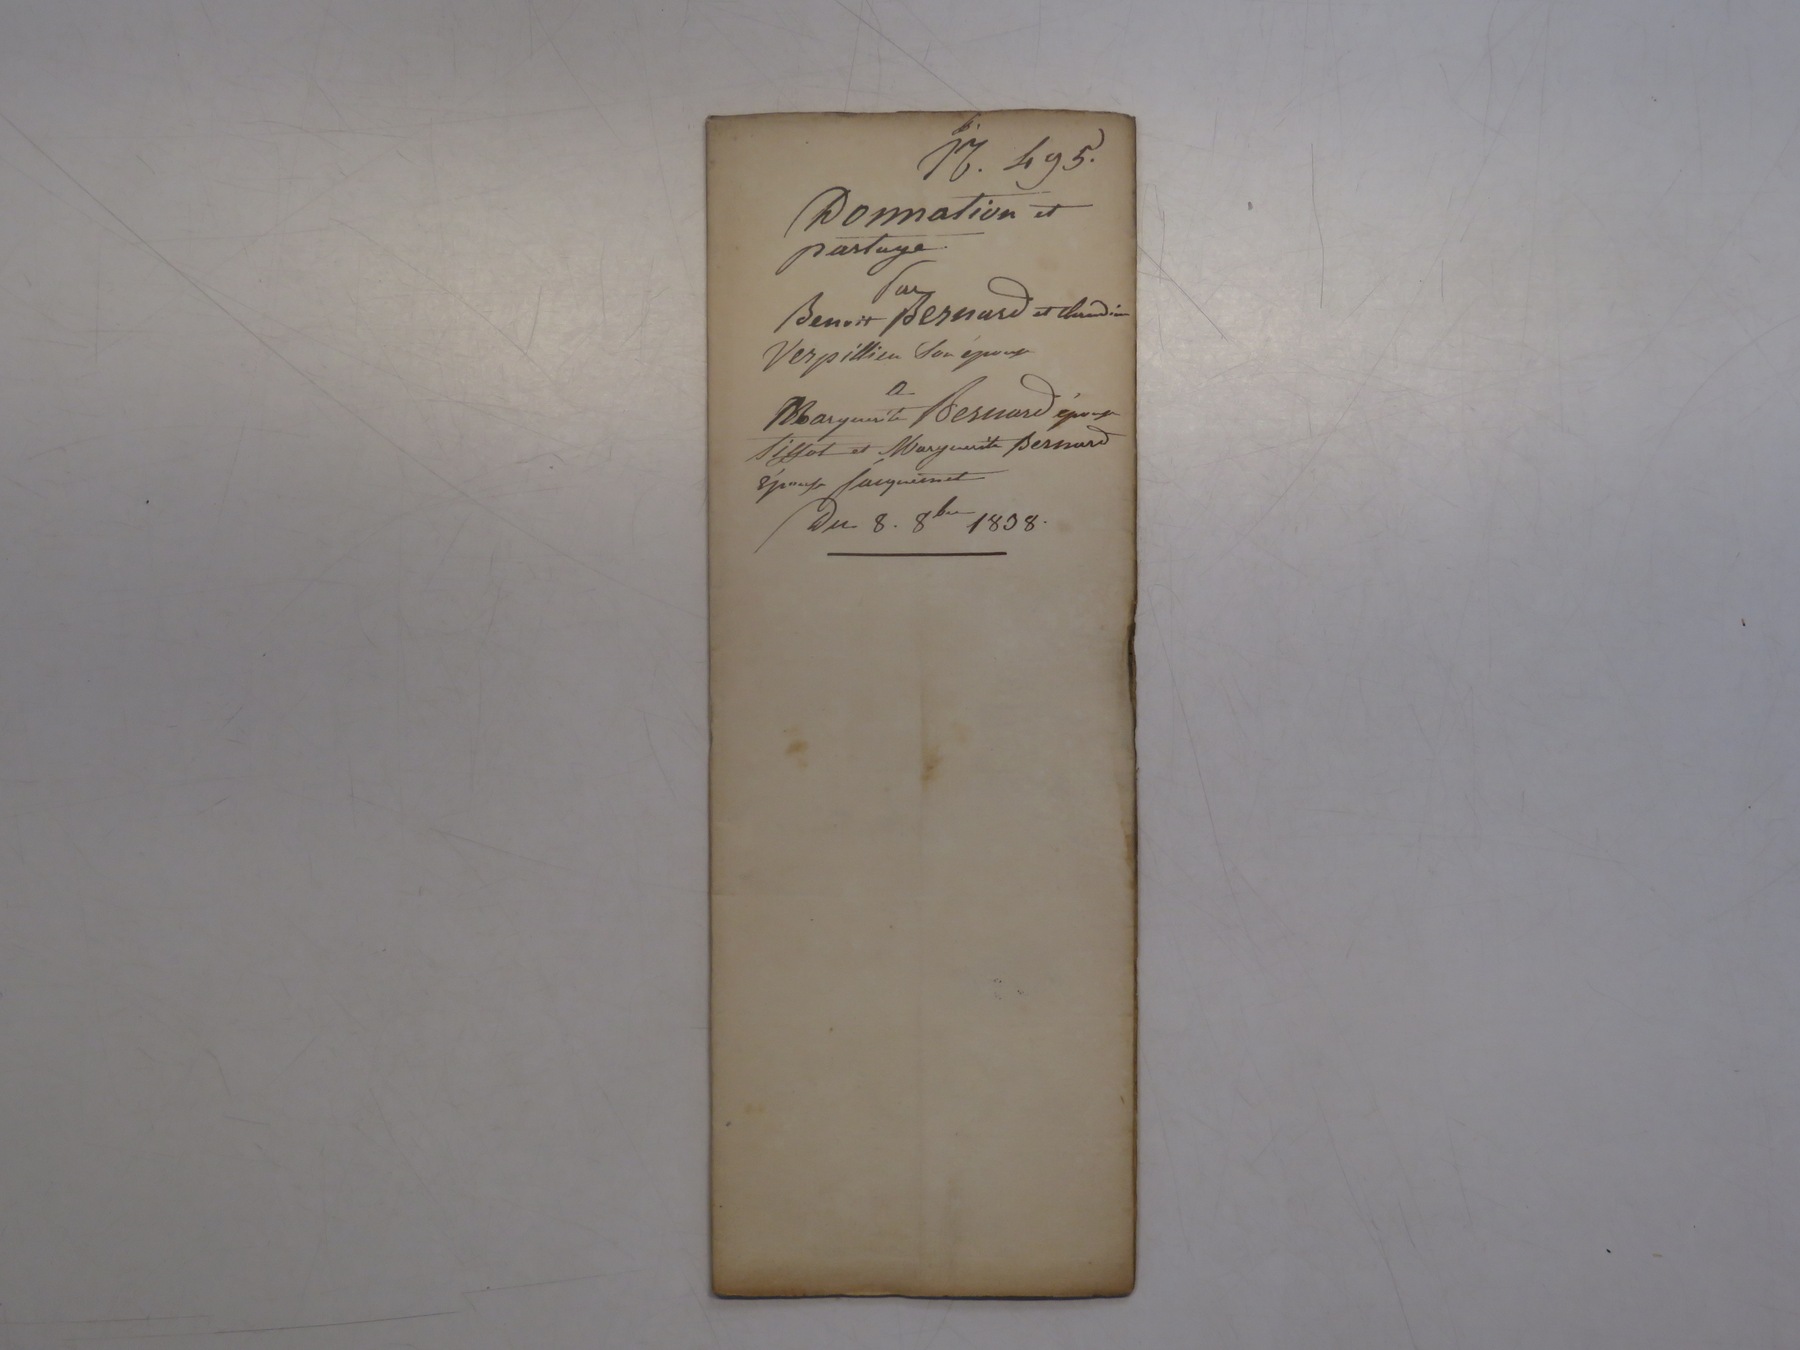 495.
Donnation et
partage
Par
Benoit Bernard et Claudine
Verpillieu Son épouse
a
Marguerite Bernard épouse
et Marguerite Bernard
épouse Jacquemet
Du 8. 8bre 1838.